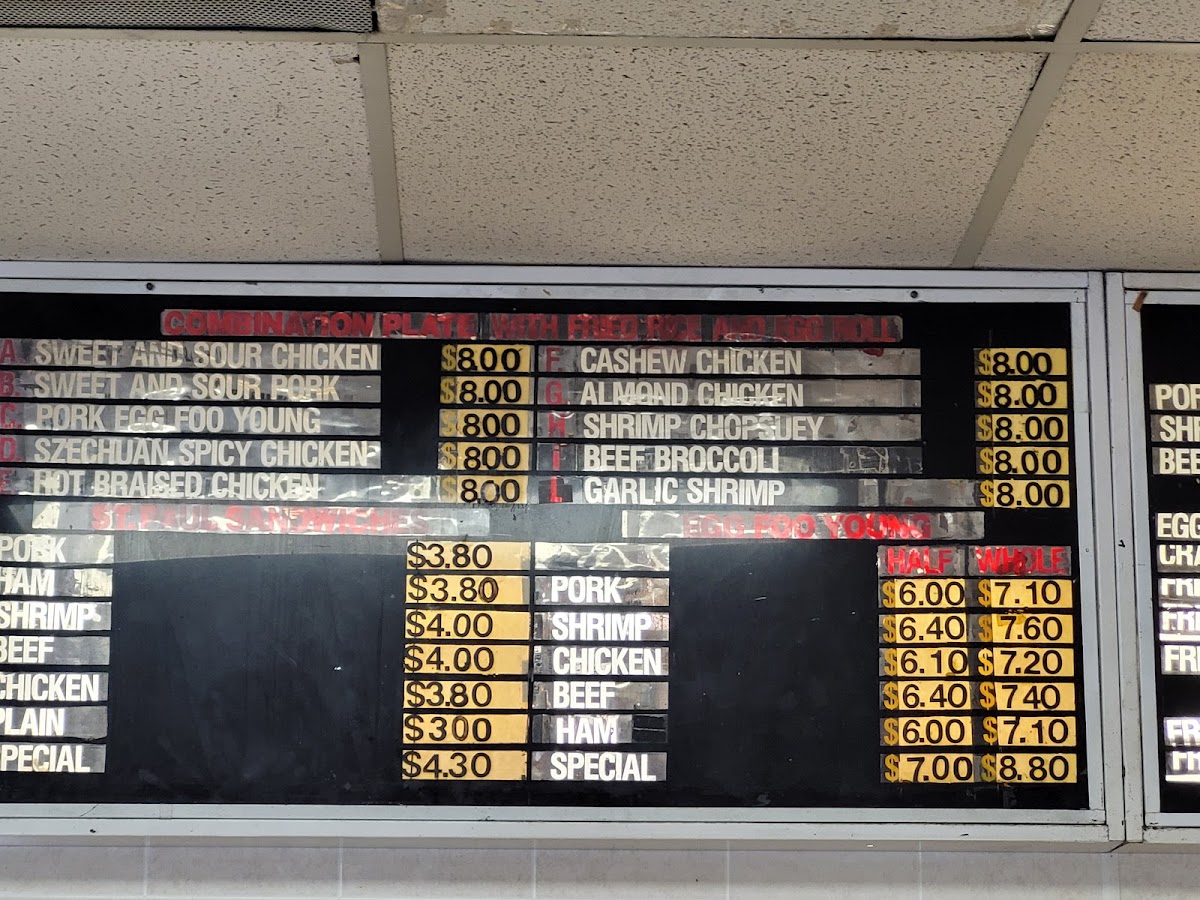 COMBINATION PLATE WITH FRIED RICE AND EGG ROLL
A SWEET AND SOUR CHICKEN $8.00
B. SWEET AND SOUR PORK $8.00
C. PORK EGG FOO YOUNG $800
D. SZECHUAN SPICY CHICKEN $800
E HOT BRAISED CHICKEN $8.00
F. CASHEW CHICKEN $8.00
G. ALMOND CHICKEN $8.00
H SHRIMP CHOP SUEY $8.00
i BEEF BROCCOLI $8.00
L GARLIC SHRIMP $8.00
ST. PAUL SANDWICHES
PORK $3.80
HAM $3.80
SHRIMP $4.00
BEEF $4.00
CHICKEN $3.80
PLAIN $300
SPECIAL $4.30
EGG FOO YOUNG
HALF WHOLE
PORK $6.00 $7.10
SHRIMP $6.40 $7.60
CHICKEN $6.10 $7.20
BEEF $6.40 $740
HAM $6.00 $7.10
SPECIAL $7.00 $8.80
POR
SHR
BEE
EGG
CRA
FRI
FRI
FRI
FR
FR